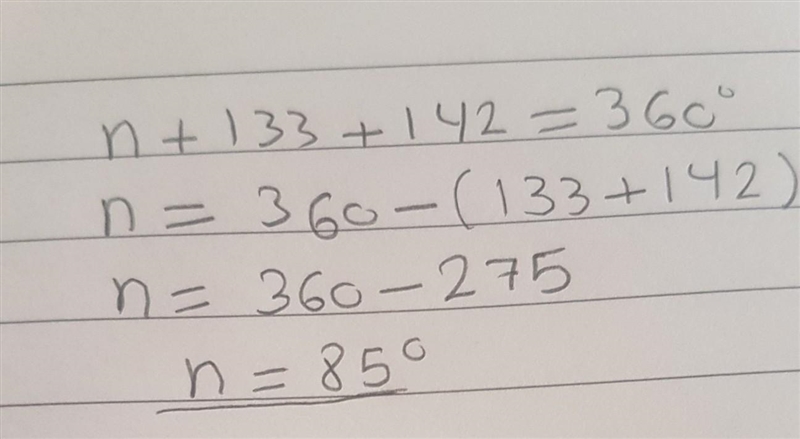 n + 133 + 142 = 360°
n = 360 - (133 + 142)
n = 360 - 275
n = 85°